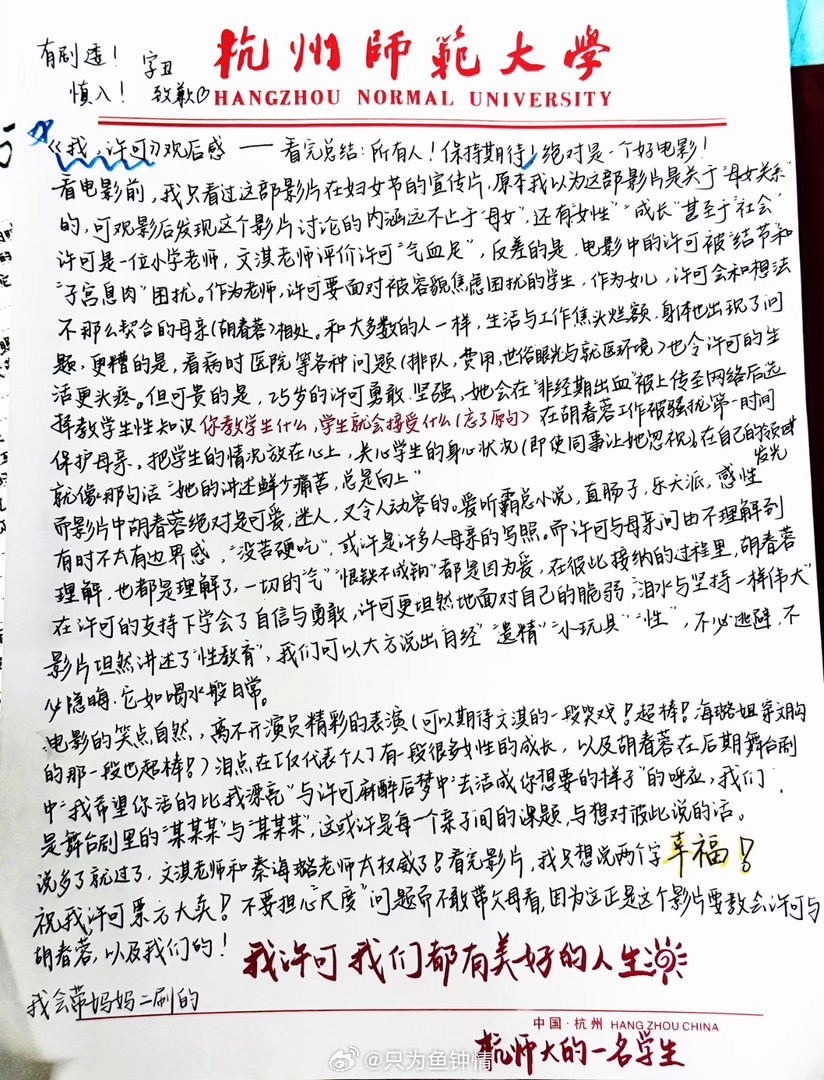 有剧透！
慎入！
字丑
致歉
杭州師範大學
HANGZHOU NORMAL UNIVERSITY
《我，许可》观后感 — 看完总结：所有人！保持期待！绝对是一个好电影！
看电影前，我只看过这部影片在妇女节的宣传片，原本我以为这部影片是关于“母女关系”
的，可观影后发现这个影片讨论的内涵远不止于“母女”，还有“女性”“成长”甚至于“社会”
许可是一位小学老师，文淇老师评价许可“气血足”，反差的是，电影中的许可被“结节和
“子宫息肉”困扰。作为老师，许可要面对被容貌焦虑困扰的学生，作为女儿，许可会和想法
不那么契合的母亲（胡春蓉）相处。和大多数的人一样，生活与工作焦头烂额，身体也出现了问
题，更糟的是，看病时医院等各种问题（排队，费用，世俗眼光与就医环境）也令许可的生
活更头疼。但可贵的是，25岁的许可勇敢.坚强，她会在“非经期出血”被上传至网络后选
择教学生性知识 你教学生什么，学生就会接受什么（忘了原句） 在胡春蓉工作被骚扰第一时间
保护母亲，把学生的情况放在心上，关心学生的身心状况（即使同事让她忽视），在自己的领域
发光
就像那句话“她的讲述鲜少痛苦，总是向上”
而影片中胡春蓉绝对是可爱，迷人，又令人动容的。爱听霸总小说，直肠子，乐天派，感性
有时不太有边界感，“没苦硬吃”，或许是许多人母亲的写照。而许可与母亲间由不理解到
理解，也都是理解了，一切的“气”“恨铁不成钢”都是因为爱，在彼此接纳的过程里，胡春蓉
在许可的支持下学会了自信与勇敢，许可更坦然地面对自己的脆弱，“泪水与坚持一样伟大”
影片坦然讲述了“性教育”，我们可以大方说出“月经”“遗精”“小玩具”“性”，不必逃避，不
必隐晦.它如喝水般日常。
电影的笑点自然，离不开演员精彩的表演（可以期待文淇的一段哭戏！超棒！海璐姐
的那一段也超棒！）泪点在［仅代表个人］有一段很多女性的成长，以及胡春蓉在后期舞台剧
中“我希望你活的比我漂亮”与许可麻醉后梦中“去活成你想要的样子”的呼应，我们
是舞台剧里的“某某某”与“某某某”，这或许是每一个亲子间的课题，与想对彼此说的话。
说多了就过了，文淇老师和秦海璐老师太权威了！看完影片，我只想说两个字 幸福！
祝我许可票房大卖！不要担心“尺度”问题而不敢带父母看，因为这正是这个影片要教会许可与
胡春蓉，以及我们的！
我许可 我们都有美好的人生
我会带妈妈二刷的
中国·杭州 HANG ZHOU CHINA
杭师大的一名学生
@只为鱼钟情